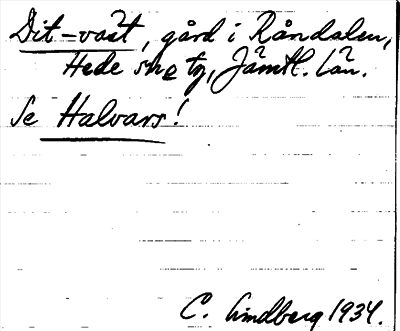 Dit-vast, gård i Råndalen,
Hede sn o tg, Jämtl. län.
Se Halvars!
C. Lindberg 1934.